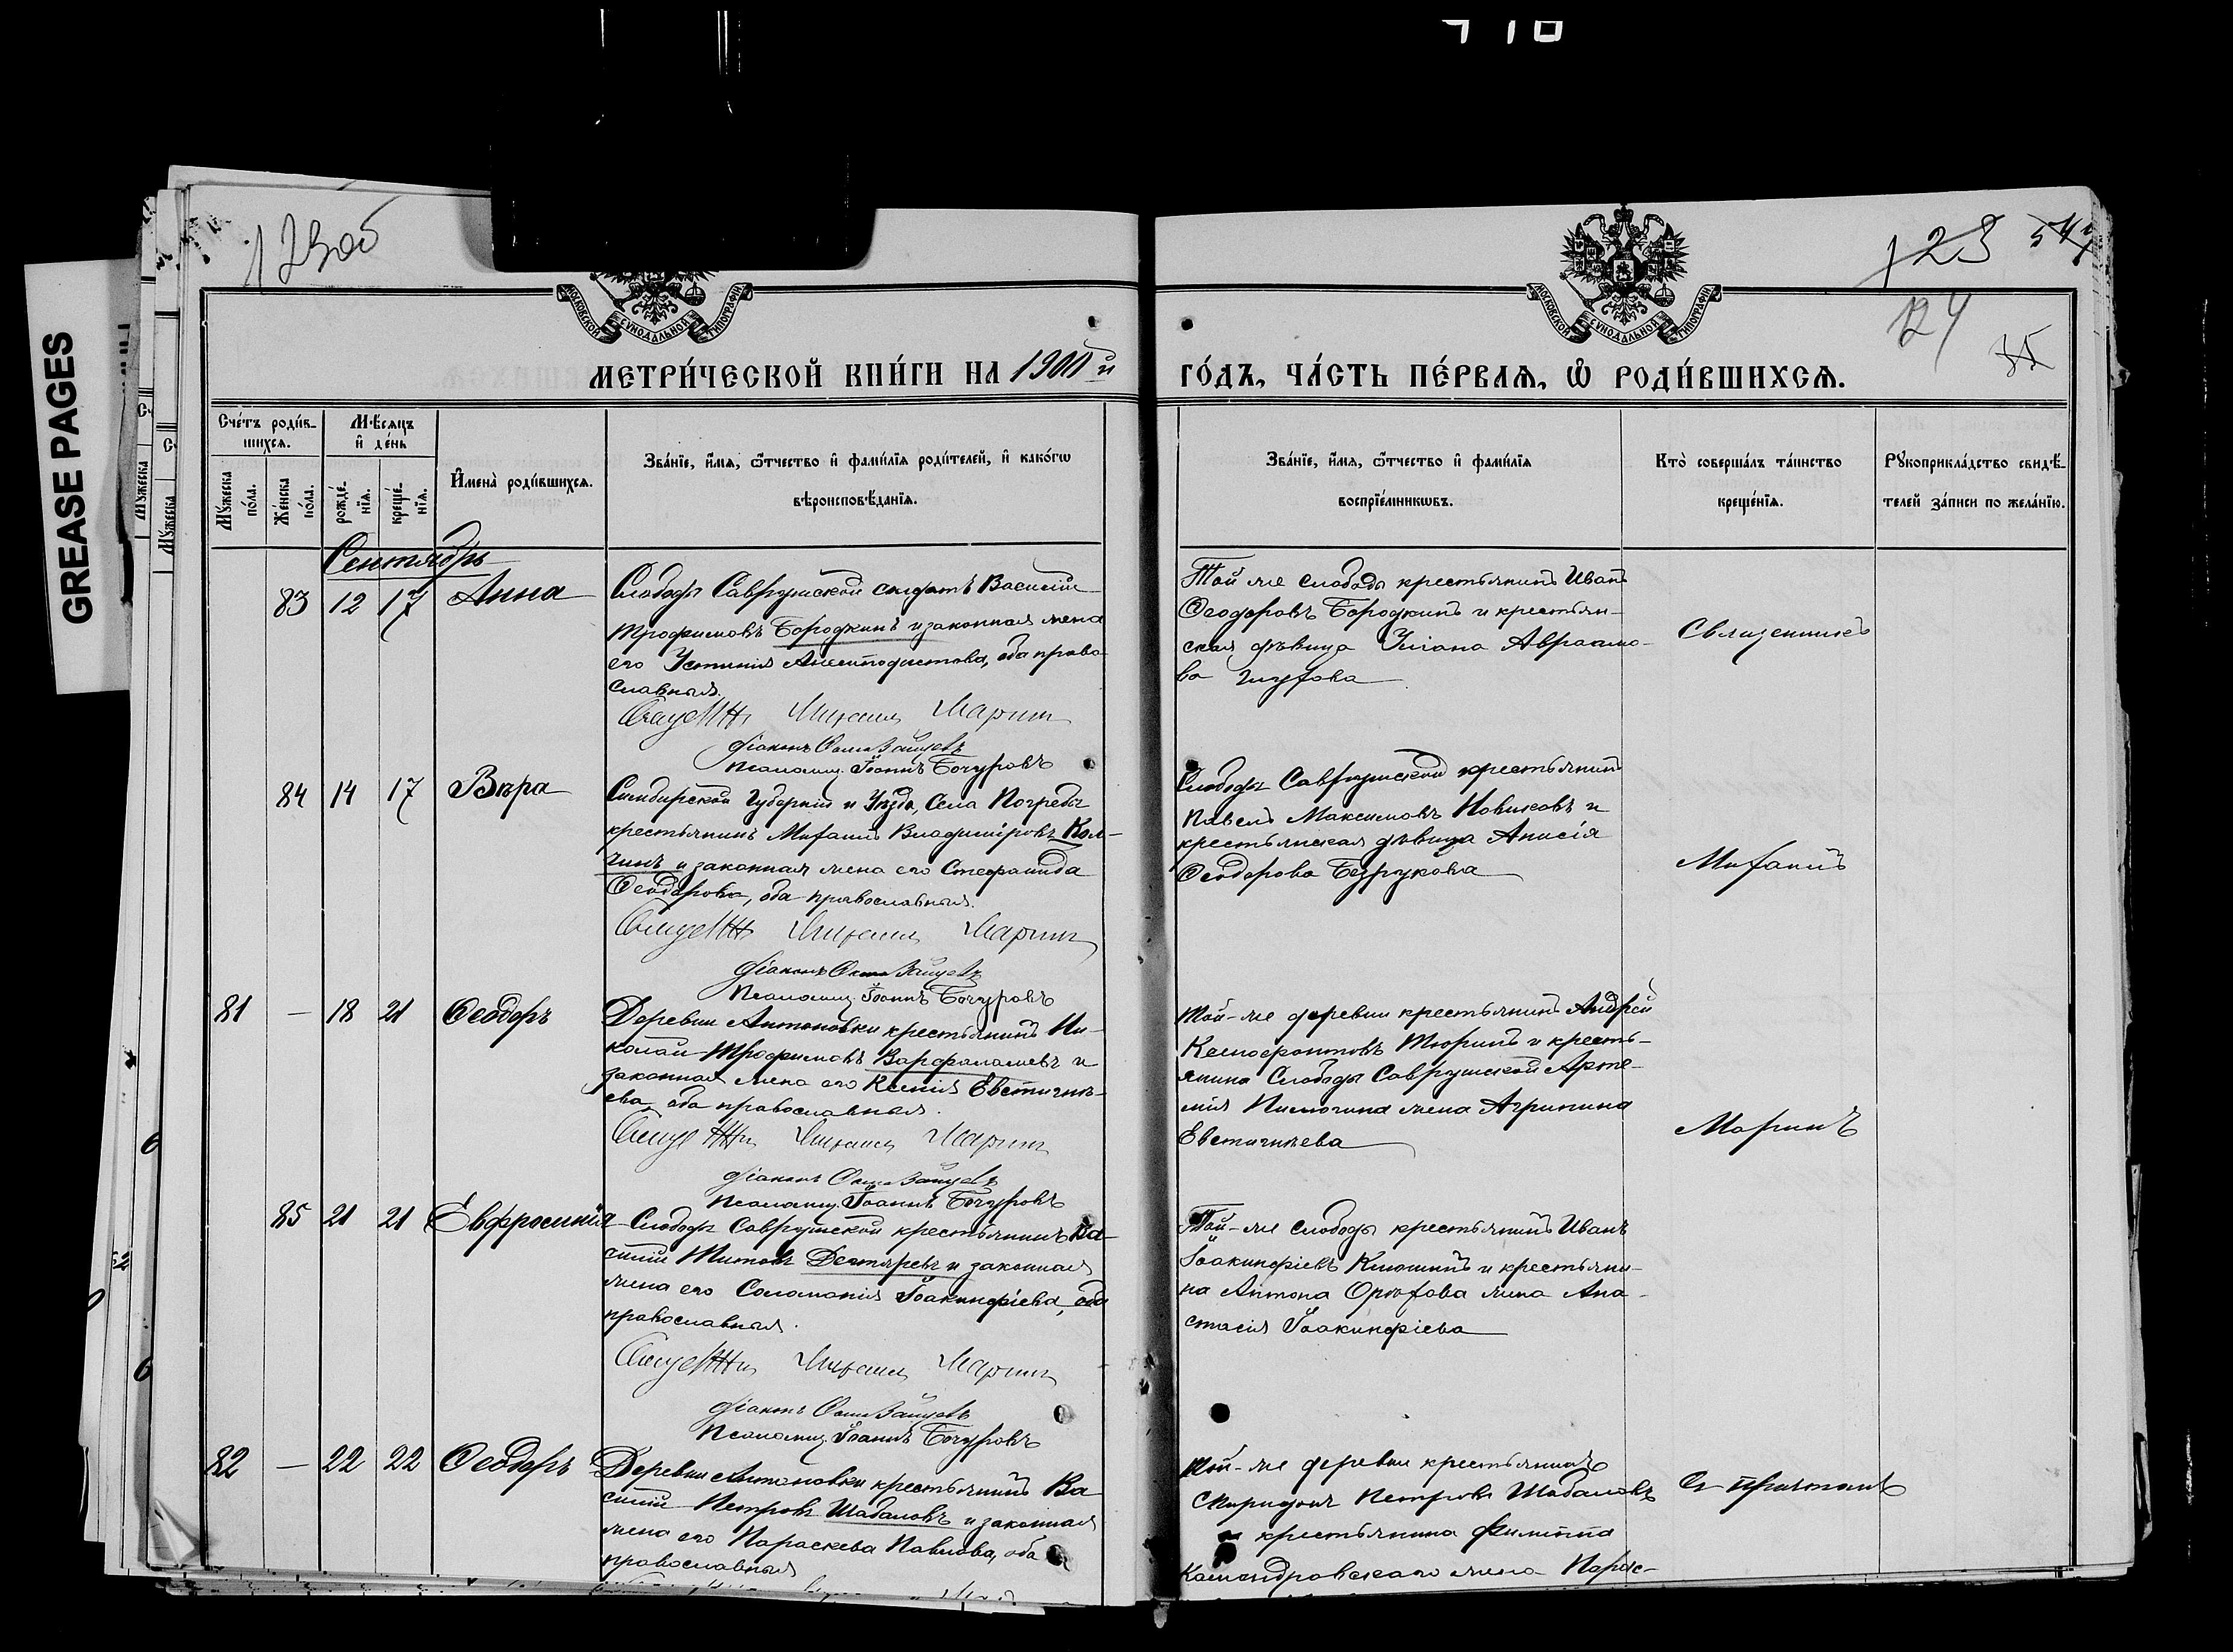 410
GREASE PAGES
123об
123
124
МОСКОВСКОЙ СѴНОДАЛЬНОЙ ТИПОГРАФІИ
МОСКОВСКОЙ СѴНОДАЛЬНОЙ ТИПОГРАФІИ
МЕТРИ́ЧЕСКОЙ КНИ́ГИ НА 1900й
ГО́ДЪ, ЧА́СТЬ ПЕ́РВАѦ, Ѽ РОДИ́ВШИХСѦ.
Сче́тъ роди́в-
шихсѧ.
Мѣсѧцъ
и҆ де́нь
Мꙋ́жеска по́ла.
Же́нска по́ла.
рожде́нїѧ.
креще́нїѧ.
И҆мена̀ роди́вшихсѧ.
Зва́нїе, и҆́мѧ, ѻ҆́тчество и҆ фами́лїѧ роди́телей, и҆ како́гѡ
вѣроисповѣ́данїѧ.
Зва́нїе, и҆́мѧ, ѻ҆́тчество и҆ фами́лїѧ
воспрїе́мникѡвъ.
Кто̀ соверша́лъ та́инство
креще́нїѧ.
Рꙋкоприкла́дство свидѣ́-
телей за́писи по жела́нїю.
Сентябрь
83 12 17 Анна
Слободы Саврушской солдатъ Василій
Трофимовъ Бородкинъ и законная жена
его Устинія Анемподистова, оба право-
славныя.
Священн. Михаилъ Маринъ
Діаконъ Зайцевъ
Псаломщ. Іоаннъ Бочуровъ
Той же слободы крестьянинъ Иванъ
Ѳеодоровъ Бородкинъ и крестьян-
ская дѣвица Уліана Авраамо-
ва Глухова
Священникъ
84 14 17 Вѣра
Симбирской Губерніи и Уѣзда, Села Погребы
крестьянинъ Михаилъ Владиміровъ Кол-
чинъ и законная жена его Стефанида
Ѳеодорова, оба православныя.
Священн. Михаилъ Маринъ
Діаконъ Зайцевъ
Псаломщ. Іоаннъ Бочуровъ
Слободы Саврушской крестьянинъ
Павелъ Максимовъ Новиковъ и
крестьянская дѣвица Анисія
Ѳеодорова Безрукова
Михаилъ
81 — 18 21 Ѳеодоръ
Деревни Антоновки крестьянинъ Ни-
колай Трофимовъ Варфаламеевъ и
законная жена его Ксенія Евстигнѣ-
ева оба православныя.
Священн. Михаилъ Маринъ
Діаконъ Зайцевъ
Псаломщ. Іоаннъ Бочуровъ
Той-же деревни крестьянинъ Андрей
Ксенофонтовъ Тюринъ и кресть-
янина Слободы Саврушской Арте-
мія жена Агрипина
Евстигнѣева
Маринъ
85 21 21 Евфросинія
Слободы Саврушской крестьянинъ Ва-
силій Титовъ Дегтяревъ и законная
жена его Соломонія Іоакинфіева, оба
православныя.
Священн. Михаилъ Маринъ
Діаконъ Зайцевъ
Псаломщ. Іоаннъ Бочуровъ
Той-же слободы крестьянинъ Иванъ
Іоакинфіевъ Клюшинъ и крестьяни-
на Антона Орѣхова жена Ана-
стасія Іоакинфіева
82 — 22 22 Ѳеодоръ
Деревни Антоновки крестьянинъ Ва
силій Петровъ Шабаловъ и законная
жена его Параскева Павлова, оба
православныя
Той-же деревни крестьянинъ
Спиридонъ Петровъ Шабаловъ
и крестьянина Филиппа
жена Парас-
Съ причтомъ